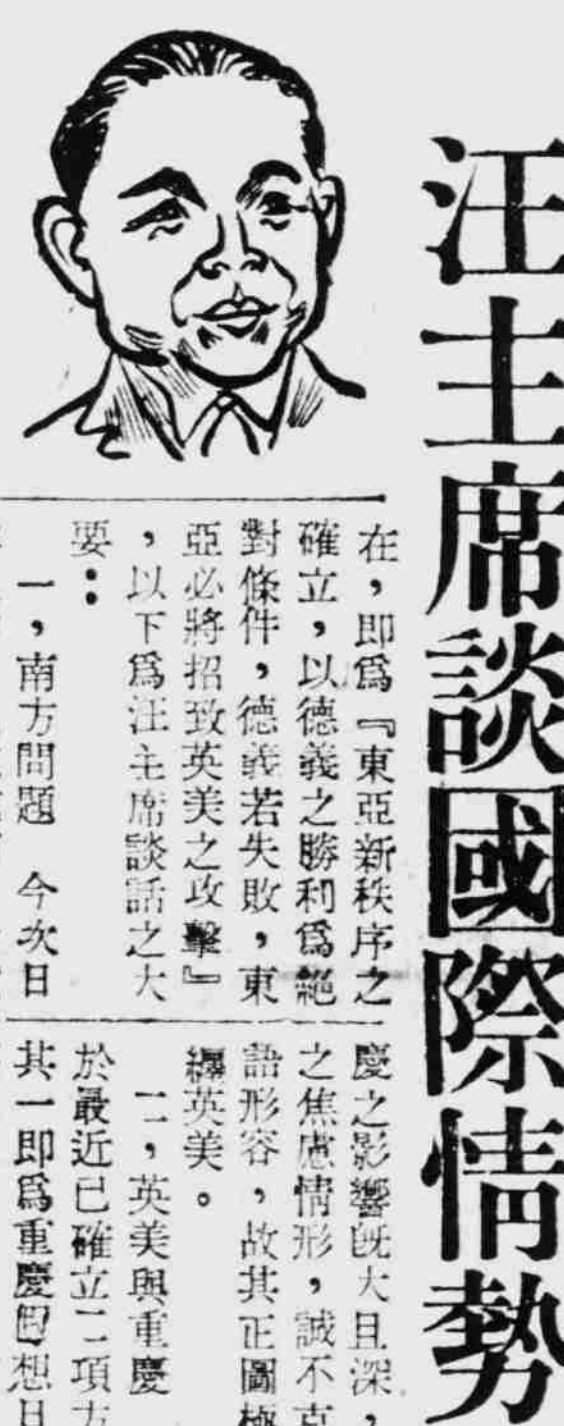 汪主席談國際情勢
在，即爲『東亞新秩序之
確立，以德義之勝利爲絕
對條件，德義若失敗，東
亞必將招致英美之攻擊』
，以下爲汪主席談話之大
要：
一，南方問題　今次日
慶之影響旣大且深，
之焦慮情形，誠不克
語形容，故其正圖極
纓英美。
二，英美與重慶
於最近已確立二項方
其一即爲重慶幻想日